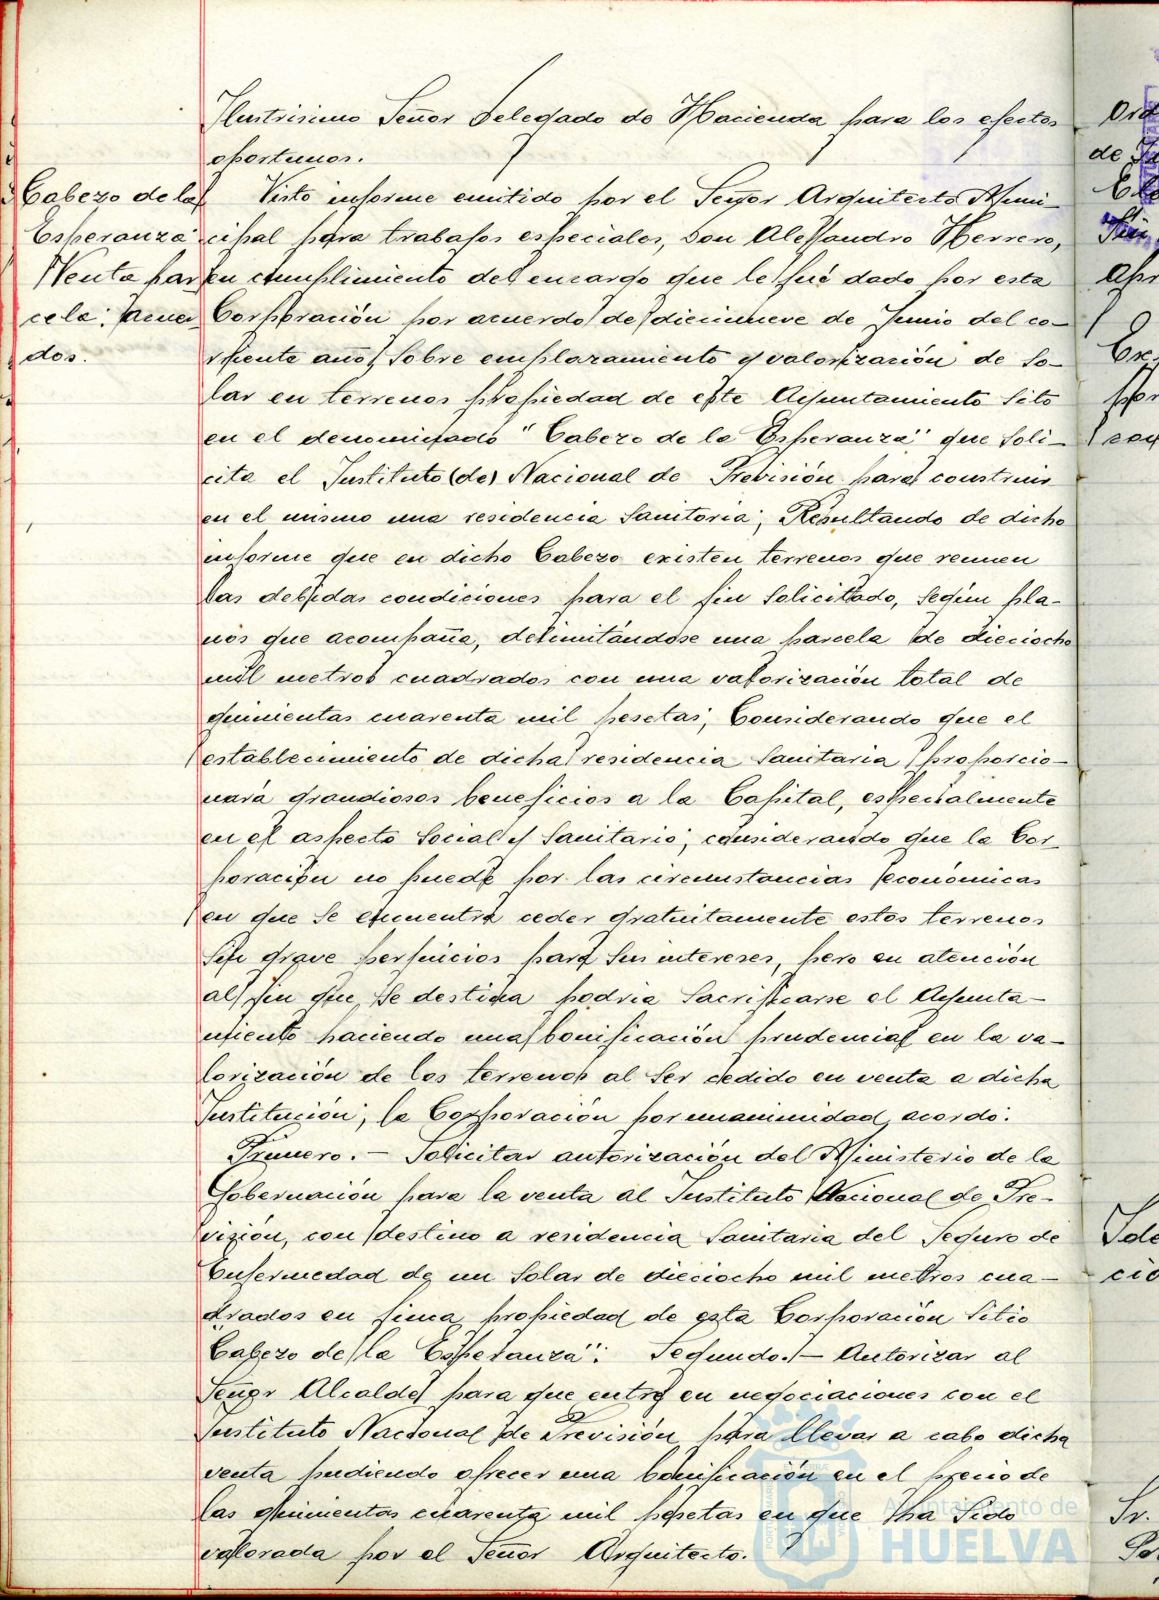 Ilustrisimo Señor Delegado de Hacienda para los efectos
oportunos.
Cabezo de la
Esperanza
Venta par
cela: Acuer
dos.
Visto informe emitido por el Señor Arquitecto Muni-
cipal para trabajos especiales, Don Alejandro Herrero,
en cumplimiento del encargo que le fué dado por esta
Corporación por acuerdo de diecinueve de Junio del co-
rriente año, sobre emplazamiento y valorización de so-
lar en terrenos propiedad de este Ayuntamiento sito
en el denominado "Cabezo de la Esperanza" que soli-
cita el Instituto (de) Nacional de Previsión para construir
en el mismo una residencia Sanitoria; Resultando de dicho
informe que en dicho Cabezo existen terrenos que reunen
las debidas condiciones para el fin solicitado, según pla-
nos que acompaña, delimitándose una parcela de dieciocho
mil metros cuadrados con una valorización total de
quinientas cuarenta mil pesetas; Considerando que el
establecimiento de dicha residencia Sanitaria proporcio-
nará grandiosos beneficios a la Capital, especialmente
en el aspecto Social y Sanitario; considerando que la Cor-
poración no puede por las circunstancias económicas
en que se encuentra ceder gratuitamente estos terrenos
sin grave perjuicios para sus intereses, pero en atención
al fin que se destina podria sacrificarse el Ayunta-
miento haciendo una bonificación prudencial en la va-
lorización de los terrenos al ser cedido en venta a dicha
Institución; la Corporación por unanimidad, acordó:
Primero.- Solicitar autorización del Ministerio de la
Gobernación para la venta al Instituto Nacional de Pre-
visión, con destino a residencia Sanitaria del Seguro de
Enfermedad de un solar de dieciocho mil metros cua-
drados en finca propiedad de esta Corporación sitio
Cabezo de la Esperanza": Segundo.- Autorizar al
Señor Alcalde para que entre en negociaciones con el
Instituto Nacional de Previsión para llevar a cabo dicha
venta pudiendo ofrecer una bonificación en el precio de
las quinientas cuarenta mil pesetas en que ha sido
valorada por el Señor Arquitecto.
Ayuntamiento de
HUELVA